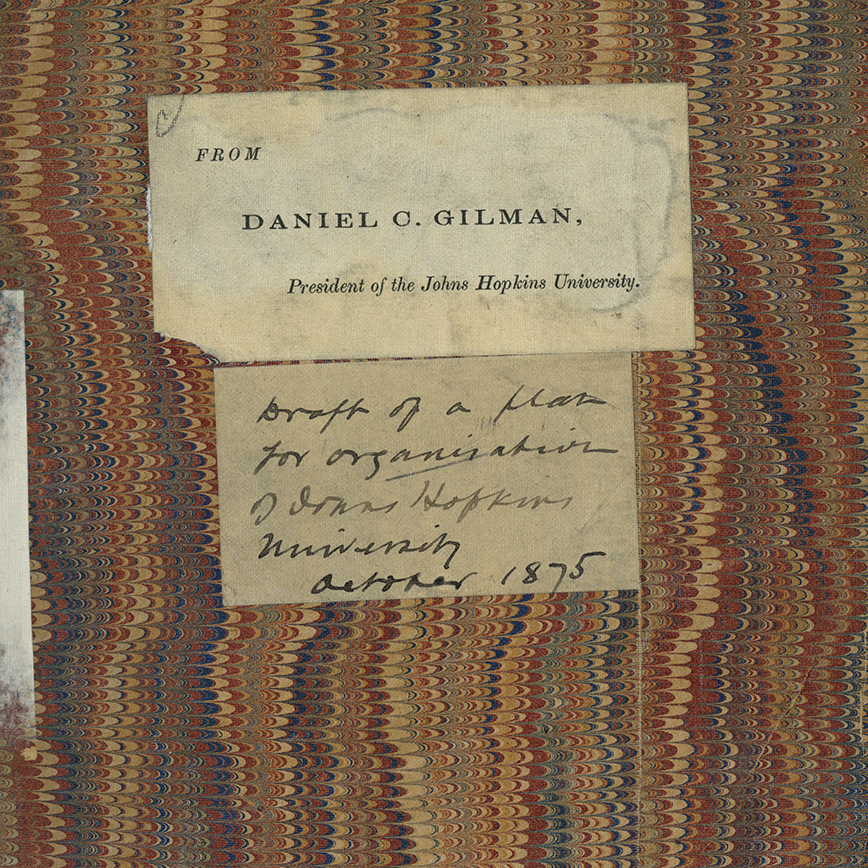 FROM
DANIEL C. GILMAN,
President of the Johns Hopkins University.
Draft of a plan
for organisation
of Johns Hopkins
University
October 1875